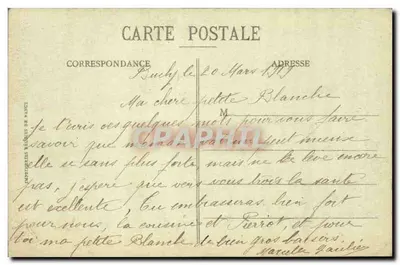 CARTE POSTALE
CORRESPONDANCE
ADRESSE
Buchy le 20 Mars 1919
Ma chère petite Blanche
M
Je t'écris ces quelques mots pour vous faire
savoir que va un peut mieux
elle se sans plus forte mais ne se lève encore
pas, j'espère que vous vous trois la santé
est excellente, Tu embrasseras bien fort
pour nous, la cousine et Pierrot, et pour
toi ma petite Blanche de bien gros baisers.
Marcelle Gaultier
CPARAMA